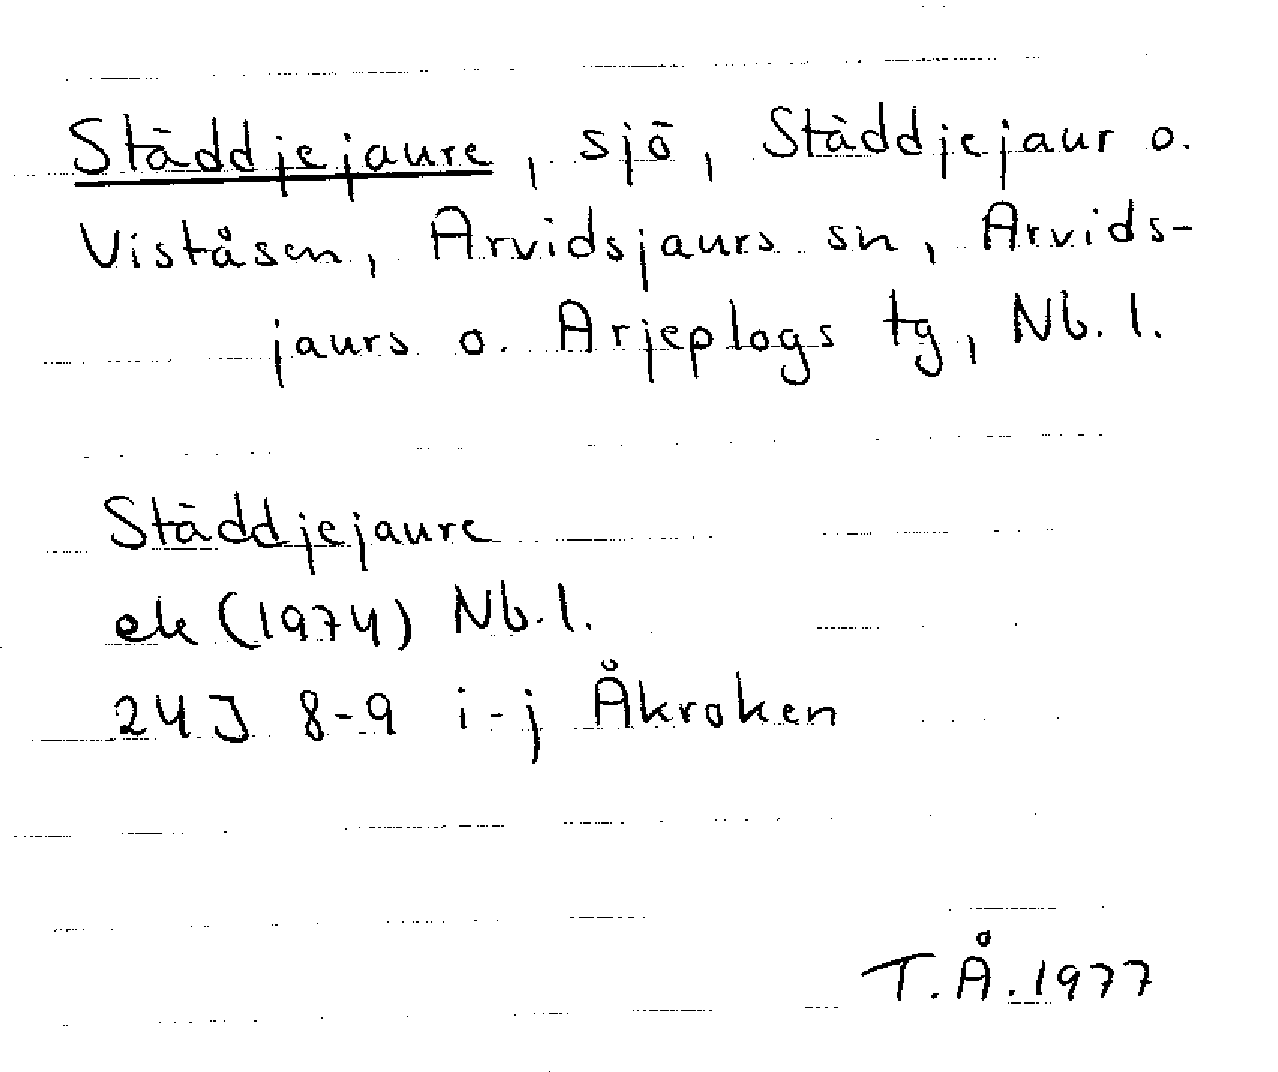 Städdjejaure, sjö, Städdjejaur o.
Viståsen, Arvidsjaurs sn, Arvids-
jaurs o. Arjeplogs tg, Nb. l.
Städdjejaure
ek (1974) Nb. l.
24J 8-9 i-j Åkroken
T.Å. 1977